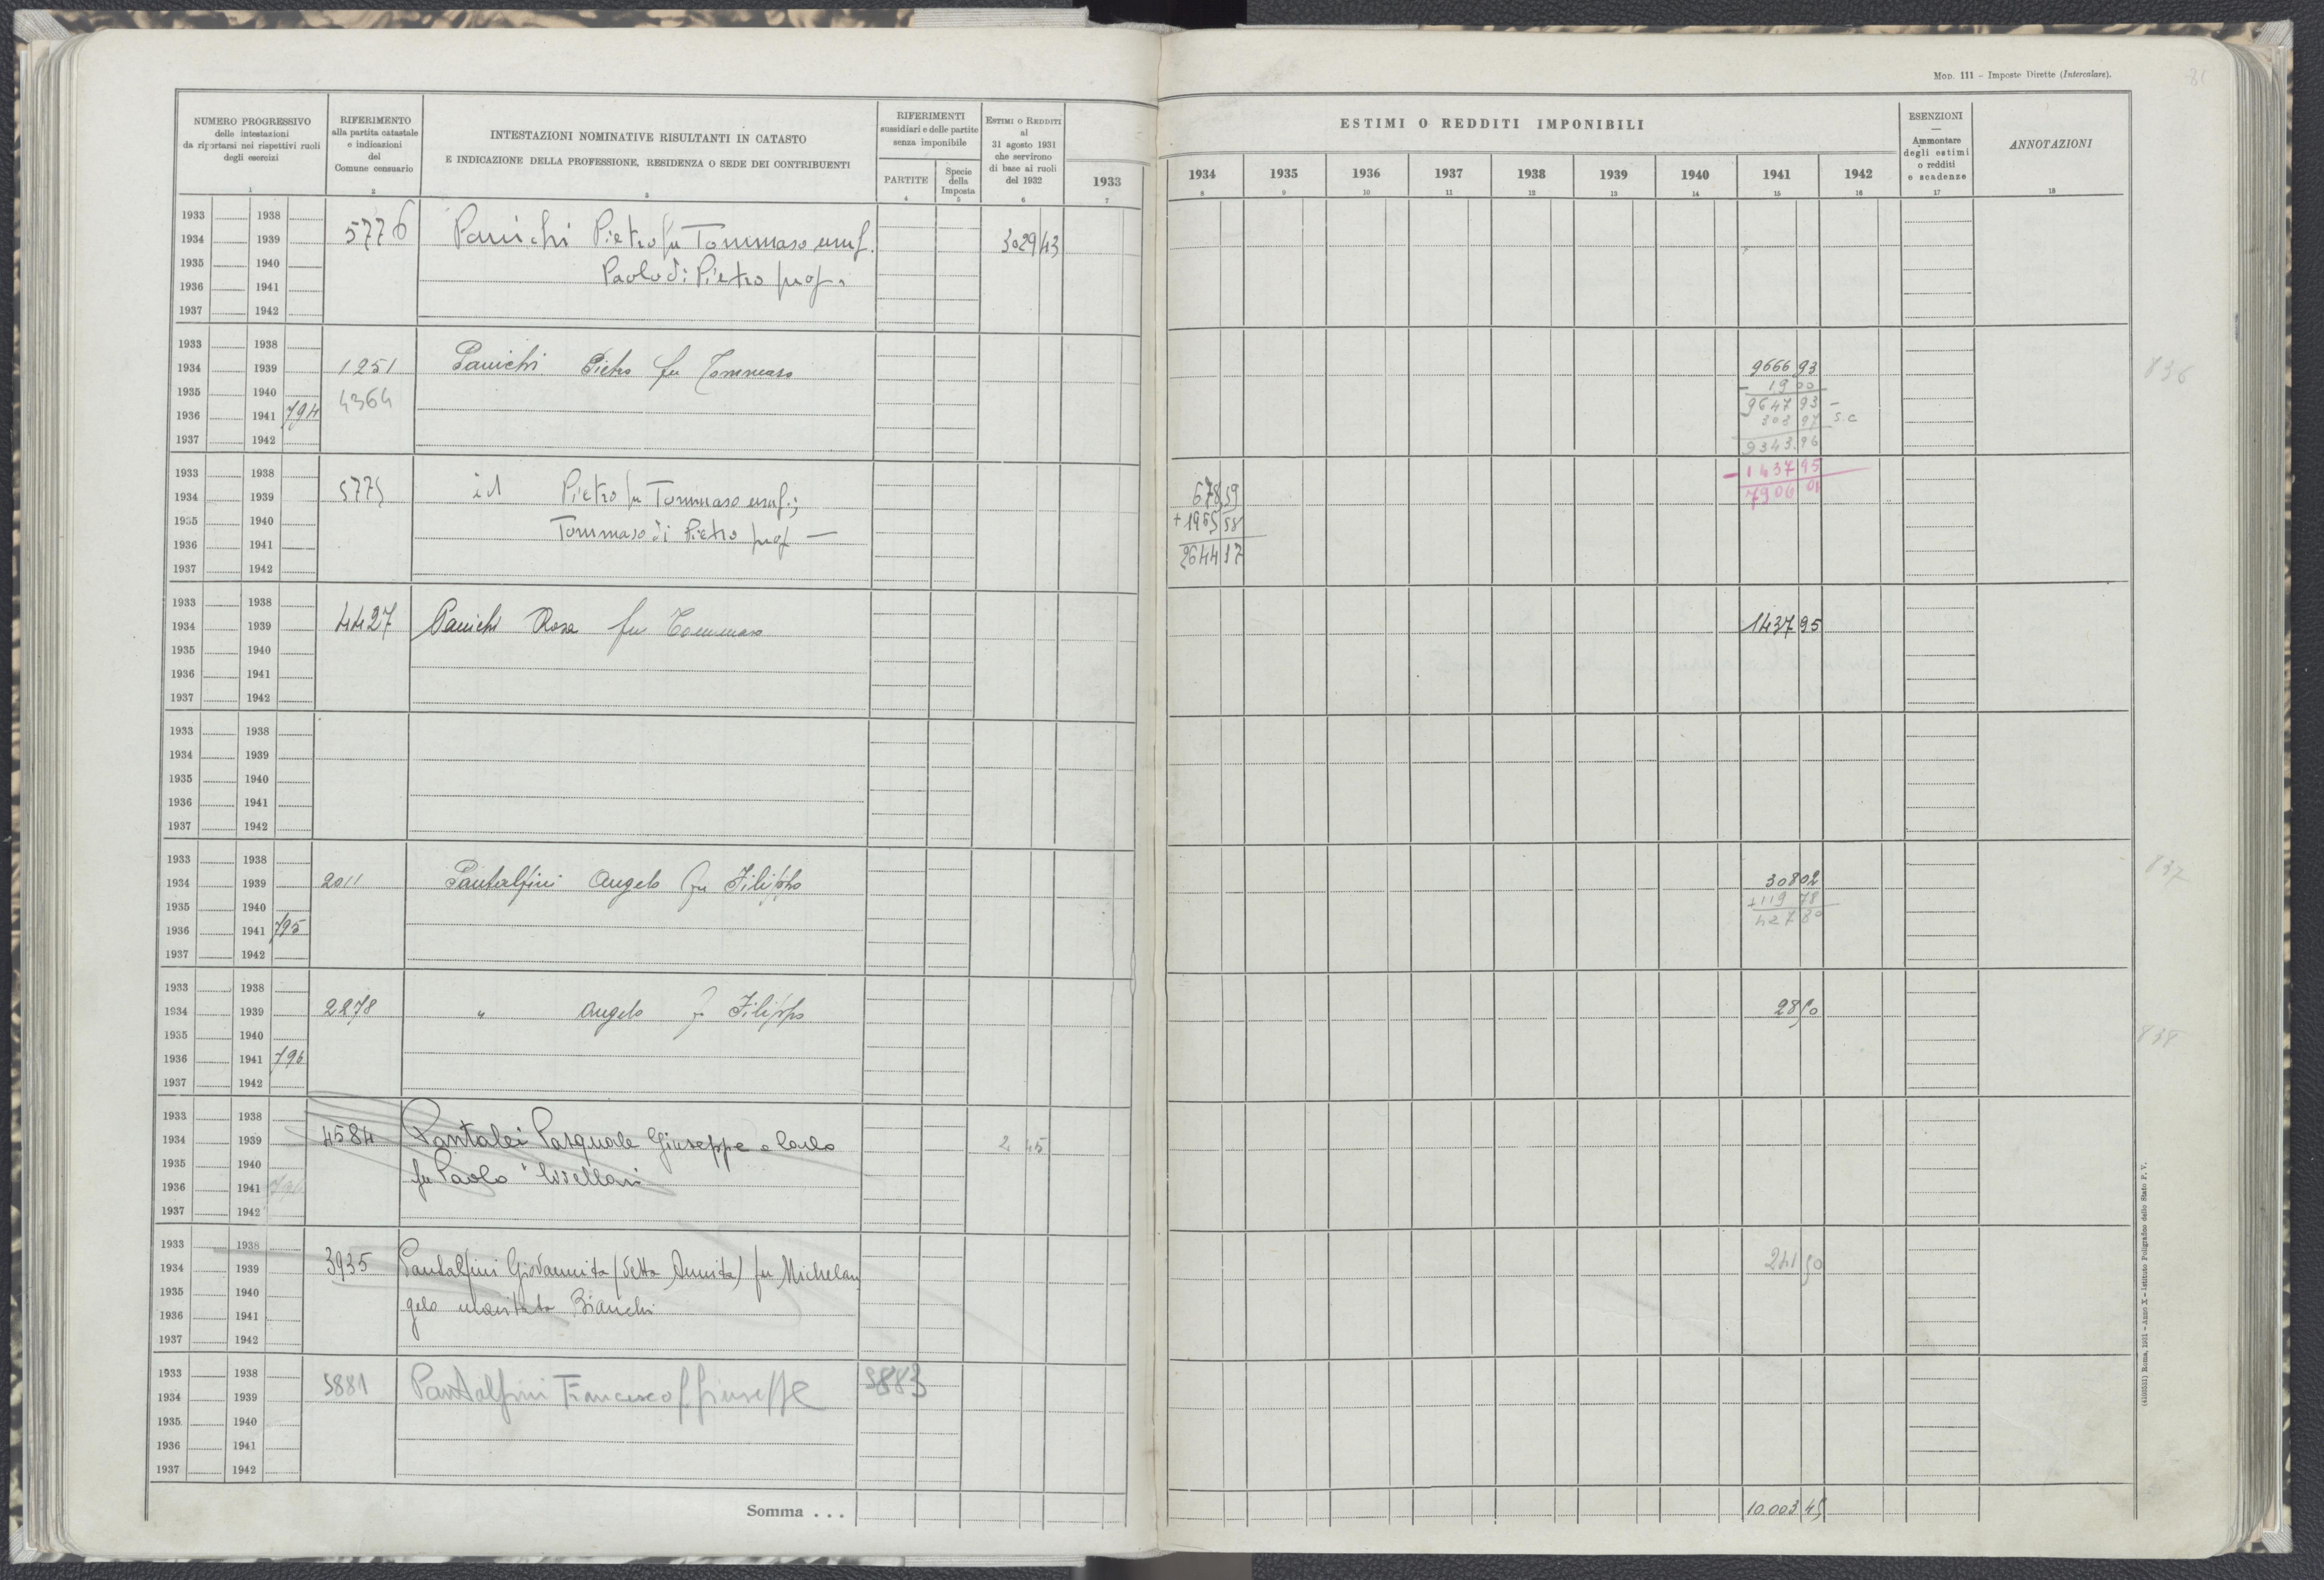 Mod. 111 – Imposte Dirette (Intercalare).
81
NUMERO PROGRESSIVO
delle intestazioni
da riportarsi nei rispettivi ruoli
degli esercizi
1
RIFERIMENTO
alla partita catastale
e indicazioni
del
Comune censuario
2
INTESTAZIONI NOMINATIVE RISULTANTI IN CATASTO
E INDICAZIONE DELLA PROFESSIONE, RESIDENZA O SEDE DEI CONTRIBUENTI
3
RIFERIMENTI
sussidiari e delle partite
senza imponibile
PARTITE
4
Specie
della
Imposta
5
Estimi o Redditi
al
31 agosto 1931
che servirono
di base ai ruoli
del 1932
6
1933
7
ESTIMI O REDDITI IMPONIBILI
1934 1935 1936 1937 1938 1939 1940 1941 1942
8 9 10 11 12 13 14 15 16
ESENZIONI
—
Ammontare
degli estimi
o redditi
e scadenze
17
ANNOTAZIONI
18
1933 1938
1934 1939 5776 Panichi Pietro fu Tommaso usuf. 3029 43
1935 1940 Paolo di Pietro prop.
1936 1941
1937 1942
1933 1938
1934 1939 1251 Panichi Pietro fu Tommaso 9666 93 836
1935 1940 4364 – 19 00
1936 1941 794 9647 93 –
303 97 s.c
1937 1942 9343.96
1933 1938 – 1437 95
1934 1939 5775 id Pietro fu Tommaso usuf.; 678,59 7906 01
1935 1940 Tommaso di Pietro prop — + 1965 58
1936 1941 2644 17
1937 1942
1933 1938
1934 1939 4427 Panichi Rosa fu Tommaso 1437 95
1935 1940
1936 1941
1937 1942
1933 1938
1934 1939
1935 1940
1936 1941
1937 1942
1933 1938
1934 1939 2011 Pantalfini Angelo fu Filippo 308 02 837
1935 1940 + 119 78
1936 1941 795 427 80
1937 1942
1933 1938
1934 1939 2278 " Angelo fu Filippo 28 50
1935 1940 838
1936 1941 796
1937 1942
1933 1938
1934 1939 4584 Pantalei Pasquale Giuseppe e Carlo 2 45
1935 1940 fu Paolo livellari
1936 1941 796
1937 1942
1933 1938
1934 1939 3935 Pantalfini Giovannita (detta Annita) fu Michelan 241 50
1935 1940 gelo maritata Bianchi
1936 1941
1937 1942
1933 1938
1934 1939 5881 Pantalfini Francesco f Giuseppe 5883
1935 1940
1936 1941
1937 1942
Somma . . . 10.003 45
(4100551) Roma, 1931 – Anno X – Istituto Poligrafico dello Stato P. V.